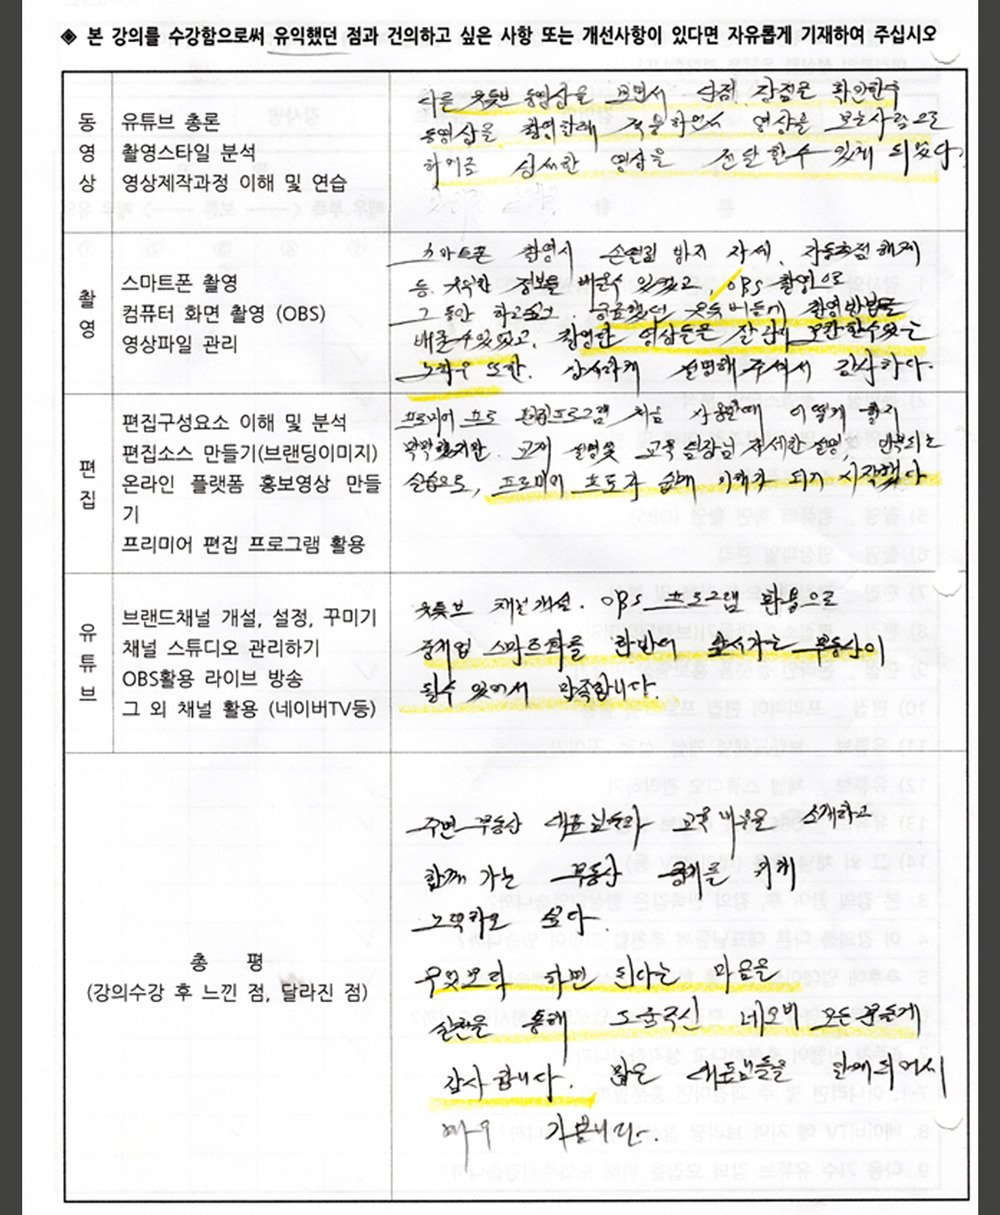 ◈ 본 강의를 수강함으로써 유익했던 점과 건의하고 싶은 사항 또는 개선사항이 있다면 자유롭게 기재하여 주십시오
동영상
유튜브 총론
촬영스타일 분석
영상제작과정 이해 및 연습
다른 유튜브 동영상을 보면서 단점 장점을 확인한후
동영상을 촬영할때 적용하면서 영상을 보는사람으로
하여금 심씨한 영상을 전달할수 있게 되었다.
촬영
스마트폰 촬영
컴퓨터 화면 촬영 (OBS)
영상파일 관리
스마트폰 촬영시 손떨림 방지 자세, 자동초점 해제
등. 유익한 정보를 배울수 있었고, OBS 촬영으로
그 동안 하고싶고. 궁금했던 유튜버들의 촬영방법을
배울수있었고, 촬영한 영상들을 잘 보관할수있는
또한. 상세하게 설명해 주셔서 감사하다.
편집
편집구성요소 이해 및 분석
편집소스 만들기(브랜딩이미지)
온라인 플랫폼 홍보영상 만들
기
프리미어 편집 프로그램 활용
프리미어 프로 편집프로그램 처음 사용할때 어떻게 할지
막막했지만. 교재 설명및 교육실장님 자세한설명, 반복되는
실습으로, 프리미어 프로가 쉽게 이해가 되기 시작했다
유튜브
브랜드채널 개설, 설정, 꾸미기
채널 스튜디오 관리하기
OBS활용 라이브 방송
그 외 채널 활용 (네이버TV등)
유튜브 채널개설. OBS 프로그램 활용으로
중개업 스마트화를 한발더 앞서가는 부동산이
될수 있어서 만족합니다.
총 평
(강의수강 후 느낀 점, 달라진 점)
주변 부동산 대표님들과 교육내용을 소개하고
함께 가는 부동산 중개를 위해
노력하고 싶다.
무엇보다 하면 된다는 마음을
실천을 통해 도움주신 네오비 모든분들께
감사합니다. 많은 대표님들을 알게되어서
매우 기쁩니다.